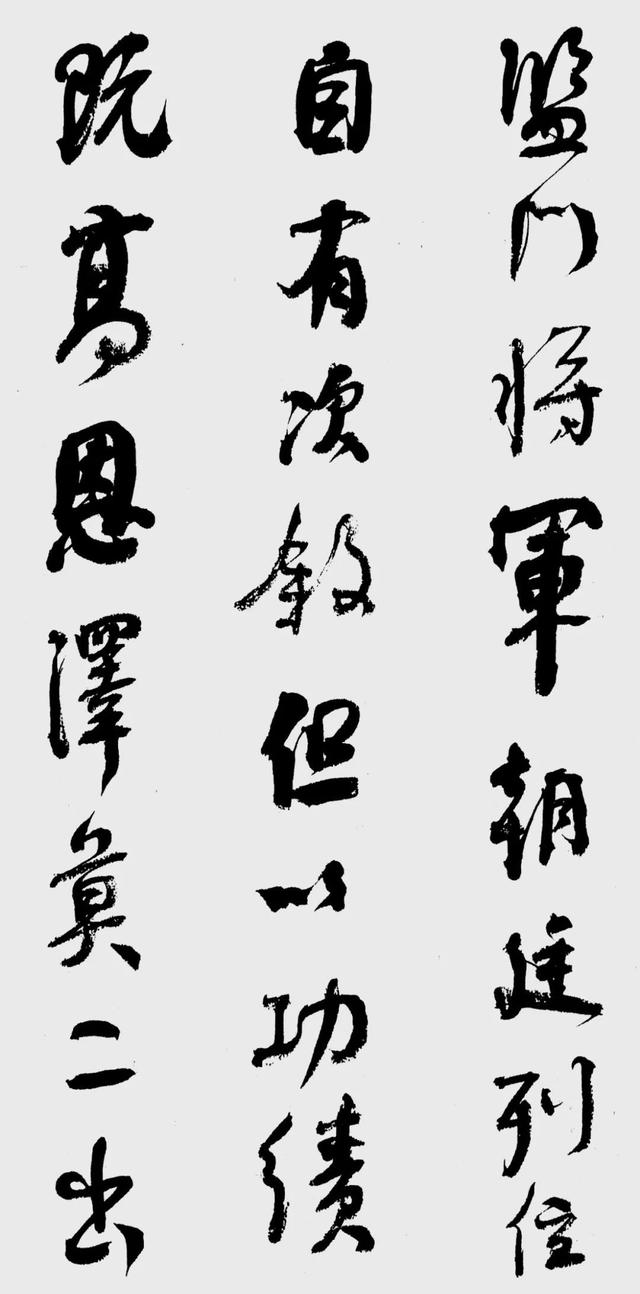 監門将軍朝廷列位
自有次敘但以功績
既高恩澤莫二出